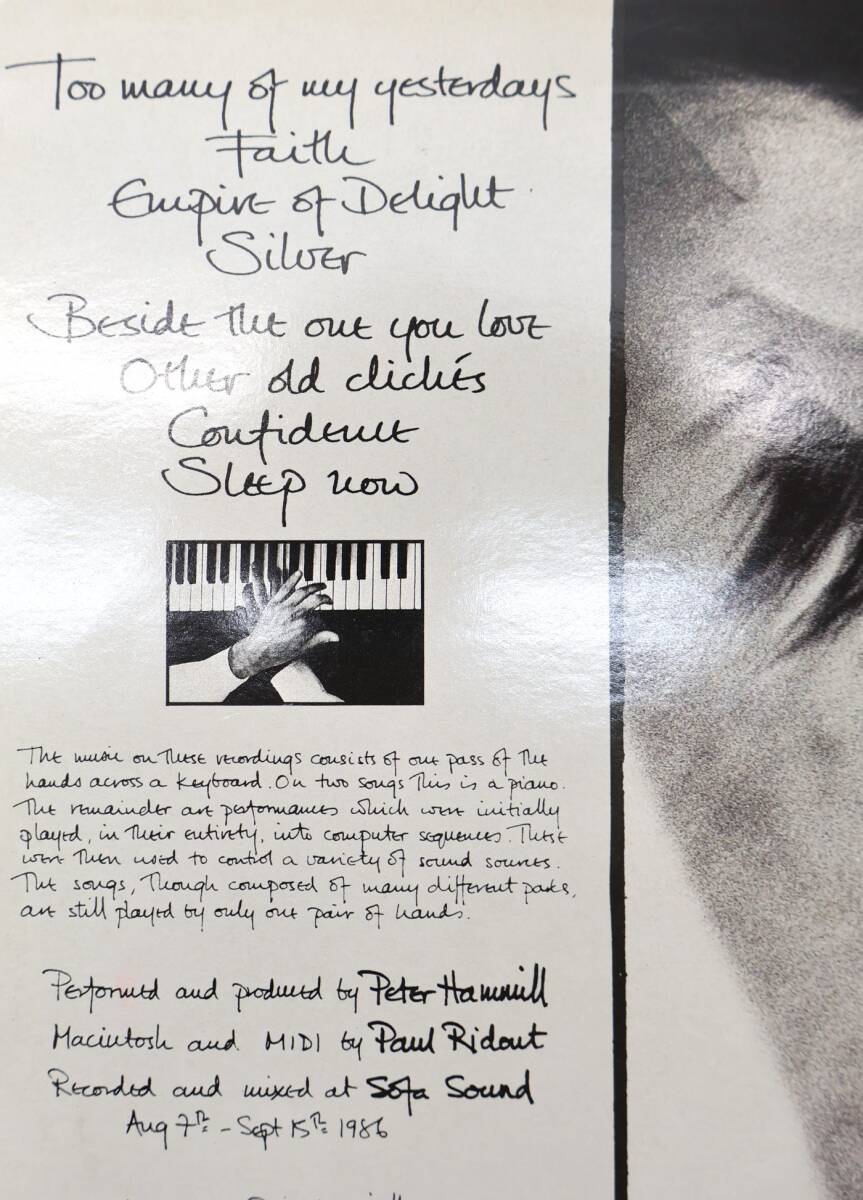 Too many of my yesterdays
Faith
Empire of Delight
Silver
Beside the one you love
Other old clichés
Confidence
Sleep now
The music on these recordings consists of one pass of the
hands across a keyboard. On two songs this is a piano.
The remainder are performances which were initially
played, in their entirety, into computer sequences. These
were then used to control a variety of sound sources.
The songs, though composed of many different parts,
are still played by only one pair of hands.
Performed and produced by Peter Hammill
Macintosh and MIDI by Paul Ridout
Recorded and mixed at Sofa Sound
Aug 7th - Sept 15th 1986